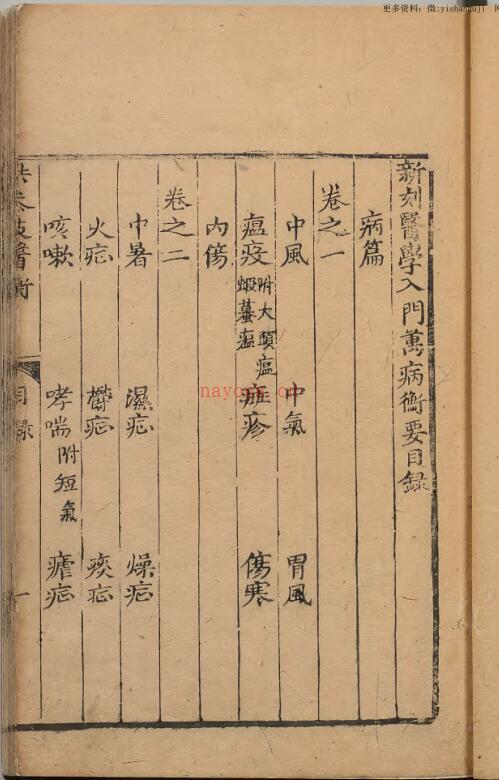 更多资料：微:yishanguji
新刻醫學入門萬病衡要目錄
病篇
卷之一
中風 中氣 胃風
瘟疫附大頭瘟蝦蟇瘟 疹 傷寒
內傷
卷之二
中暑 濕症 燥症
火症 欝症 痰症
咳嗽 哮喘附短氣 瘧症
醫衡 目錄 一
nayona.cn